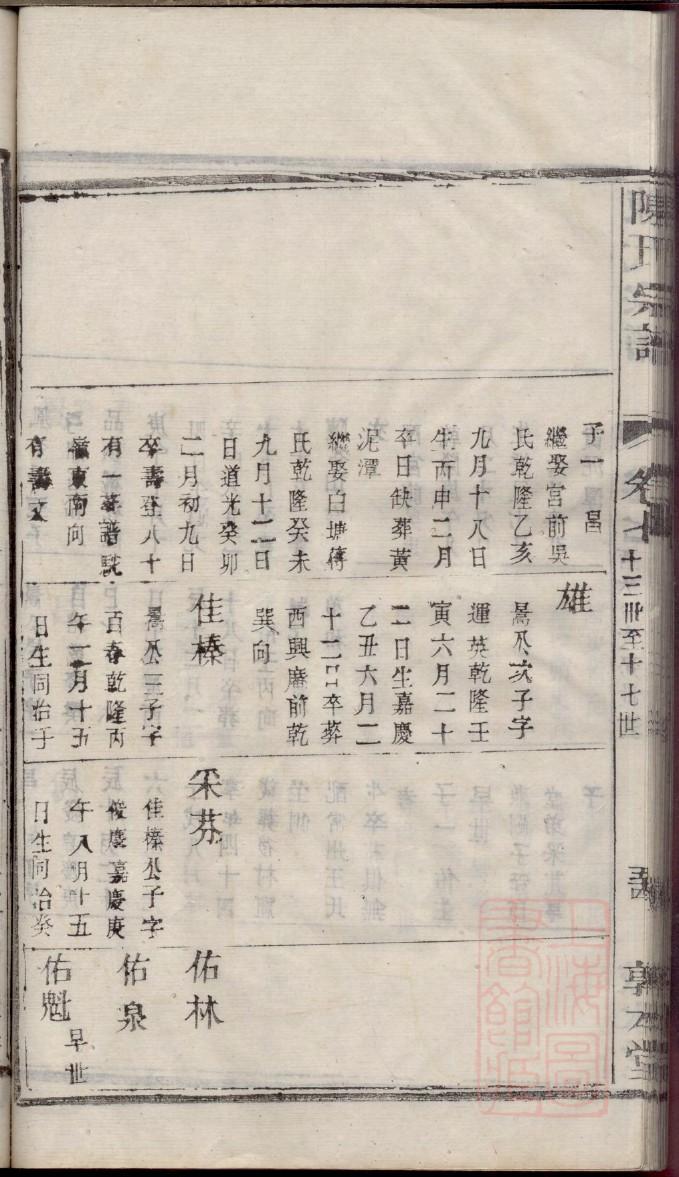 陳氏宗譜
卷
十三世至十七世
敦 堂
子一昌
繼娶宮前吳
氏乾隆乙亥
九月十八日
生丙申二月
卒日缺葬黃
泥潭
繼娶白塘傅
氏乾隆癸未
九月十二日
日道光癸卯
二月初九日
卒壽登八十
有一葬譜駝
嶺東南向
有壽文
雄
暠公次子字
運英乾隆壬
寅六月二十
二日生嘉慶
乙丑六月二
十二日卒葬
西興庵前乾
巽向
佳榛
暠公三子字
百春乾隆丙
午二月十五
日生同治于
采芬
佳榛公子字
俊慶嘉慶庚
午八月廿五
日生同治癸
佑林
佑泉
佑魁 早世
上海圖書館